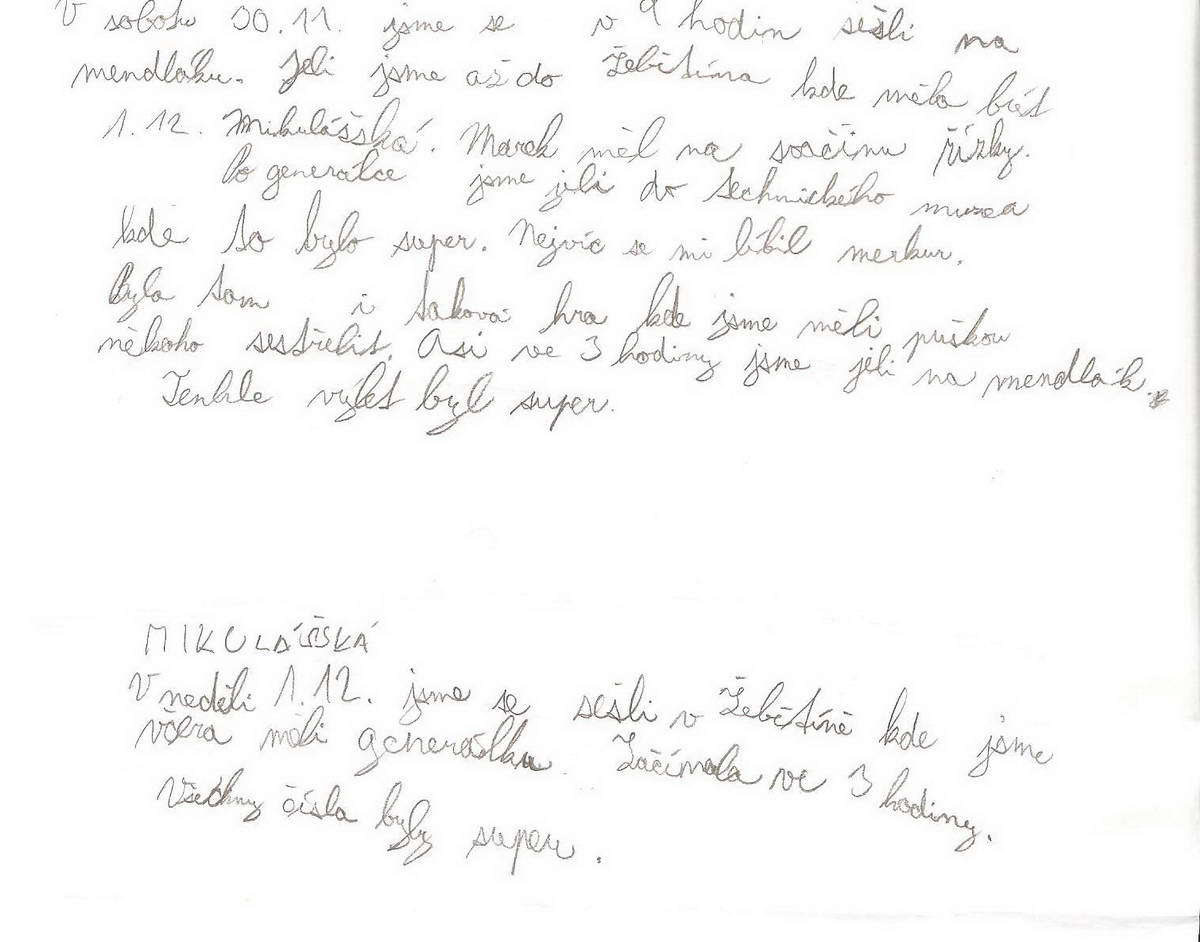 V sobotu 30.11. jsme se v 9 hodin sešli na
mendláku. Jeli jsme až do Žebětína kde měla být
1.12. Mikulášská. Marek měl na svačinu řízky.
Po generálce jsme jeli do technického muzea
kde to bylo super. Nejvíc se mi líbil merkur.
Byla tam i taková hra kde jsme měli puškou
někoho sestřelit. Asi ve 3 hodiny jsme jeli na mendlák.
Tenhle výlet byl super.
MIKULÁŠSKÁ
V neděli 1.12. jsme se sešli v Žebětíně kde jsme
včera měli generálku. Začínala ve 3 hodiny.
Všechny čísla byly super.